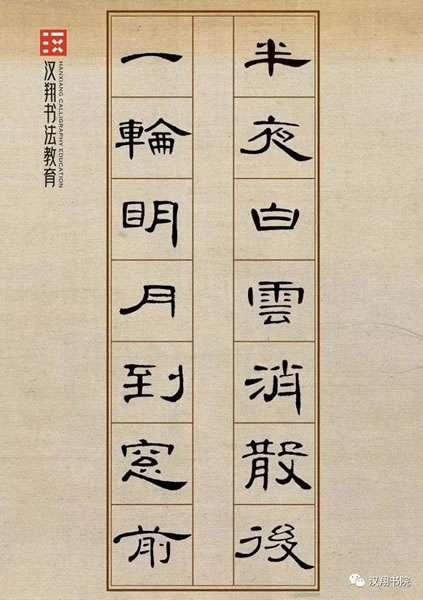 半夜白雲消散後
一輪明月到窓前
汉翔书法教育
HANXIANG CALLIGRAPHY EDUCATION
汉翔书院